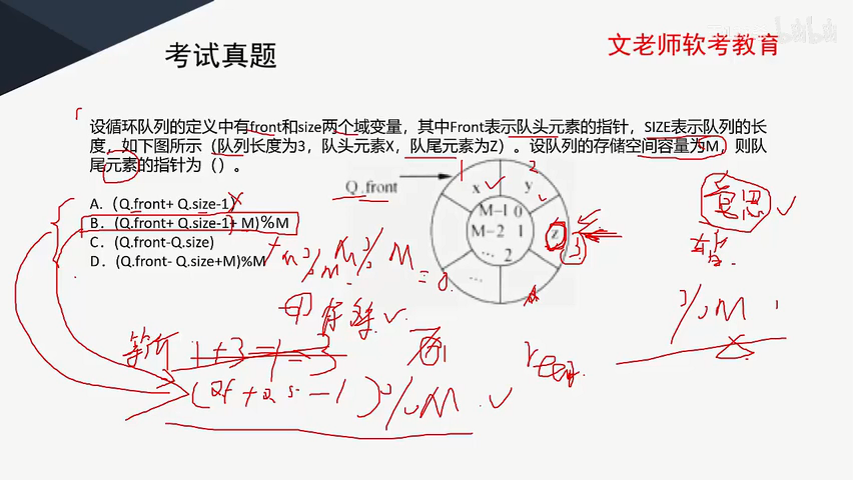 考试真题
文老师软考教育
设循环队列的定义中有front和size两个域变量，其中Front表示队头元素的指针，SIZE表示队列的长
度，如下图所示（队列长度为3，队头元素X，队尾元素为Z）。设队列的存储空间容量为M，则队
尾元素的指针为（）。
A.（Q.front+ Q.size-1）
B.（Q.front+ Q.size-1+ M)%M
C.（Q.front-Q.size)
D.（Q.front- Q.size+M)%M
Q.front
x
y
z
M-1 0
M-2 1
… 2
…
1
2
3
%M
1+3-1=3
-1)%M